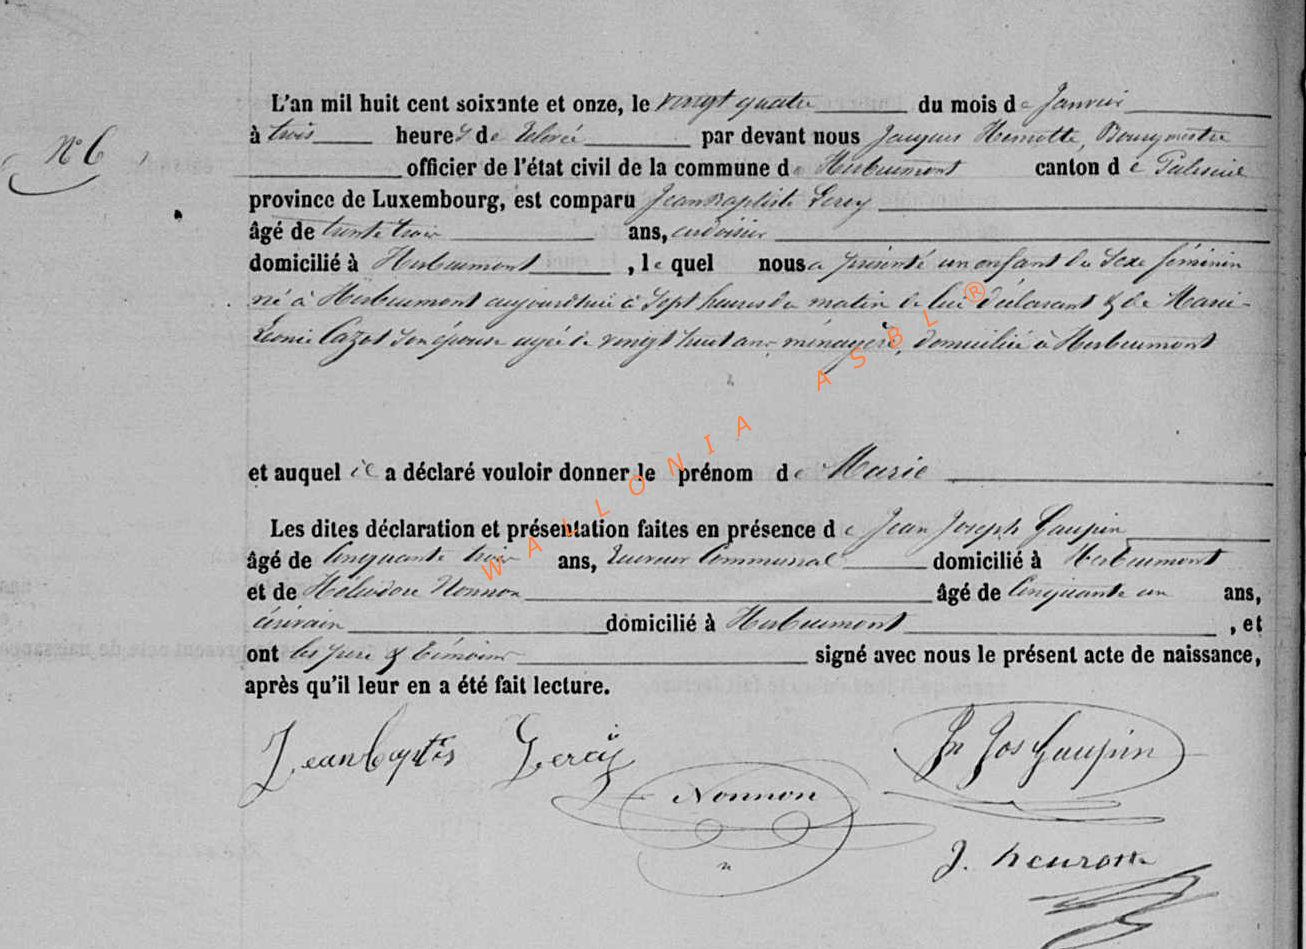 L'an mil huit cent soixante et onze, le vingt quatre du mois de Janvier
N° 6
à trois heures de relevée par devant nous Jacques Henrotte, Bourgmestre
officier de l'état civil de la commune de Herbeumont canton de Paliseul
province de Luxembourg, est comparu Jean Baptiste
âgé de trente trois ans, ardoisier
domicilié à Herbeumont, le quel nous a présenté un enfant du Sexe féminin
né à Herbeumont aujourdhui à Sept heures du matin de lui déclarant & de Marie-
Léonie Cazot Son épouse agée de vingt huit ans, ménagère, domiciliée à Herbeumont
et auquel il a déclaré vouloir donner le prénom de Marie
Les dites déclaration et présentation faites en présence de Jean Joseph Gaupin
âgé de Cinquante trois ans, Receveur Communal domicilié à Herbeumont
et de Héliodore Nonnon âgé de Cinquante un ans,
écrivain domicilié à Herbeumont, et
ont les père & témoins signé avec nous le présent acte de naissance,
après qu'il leur en a été fait lecture.
Jean Jos Gaupin
Nonnon
J. henrotte
WALLONIA ASBL ®